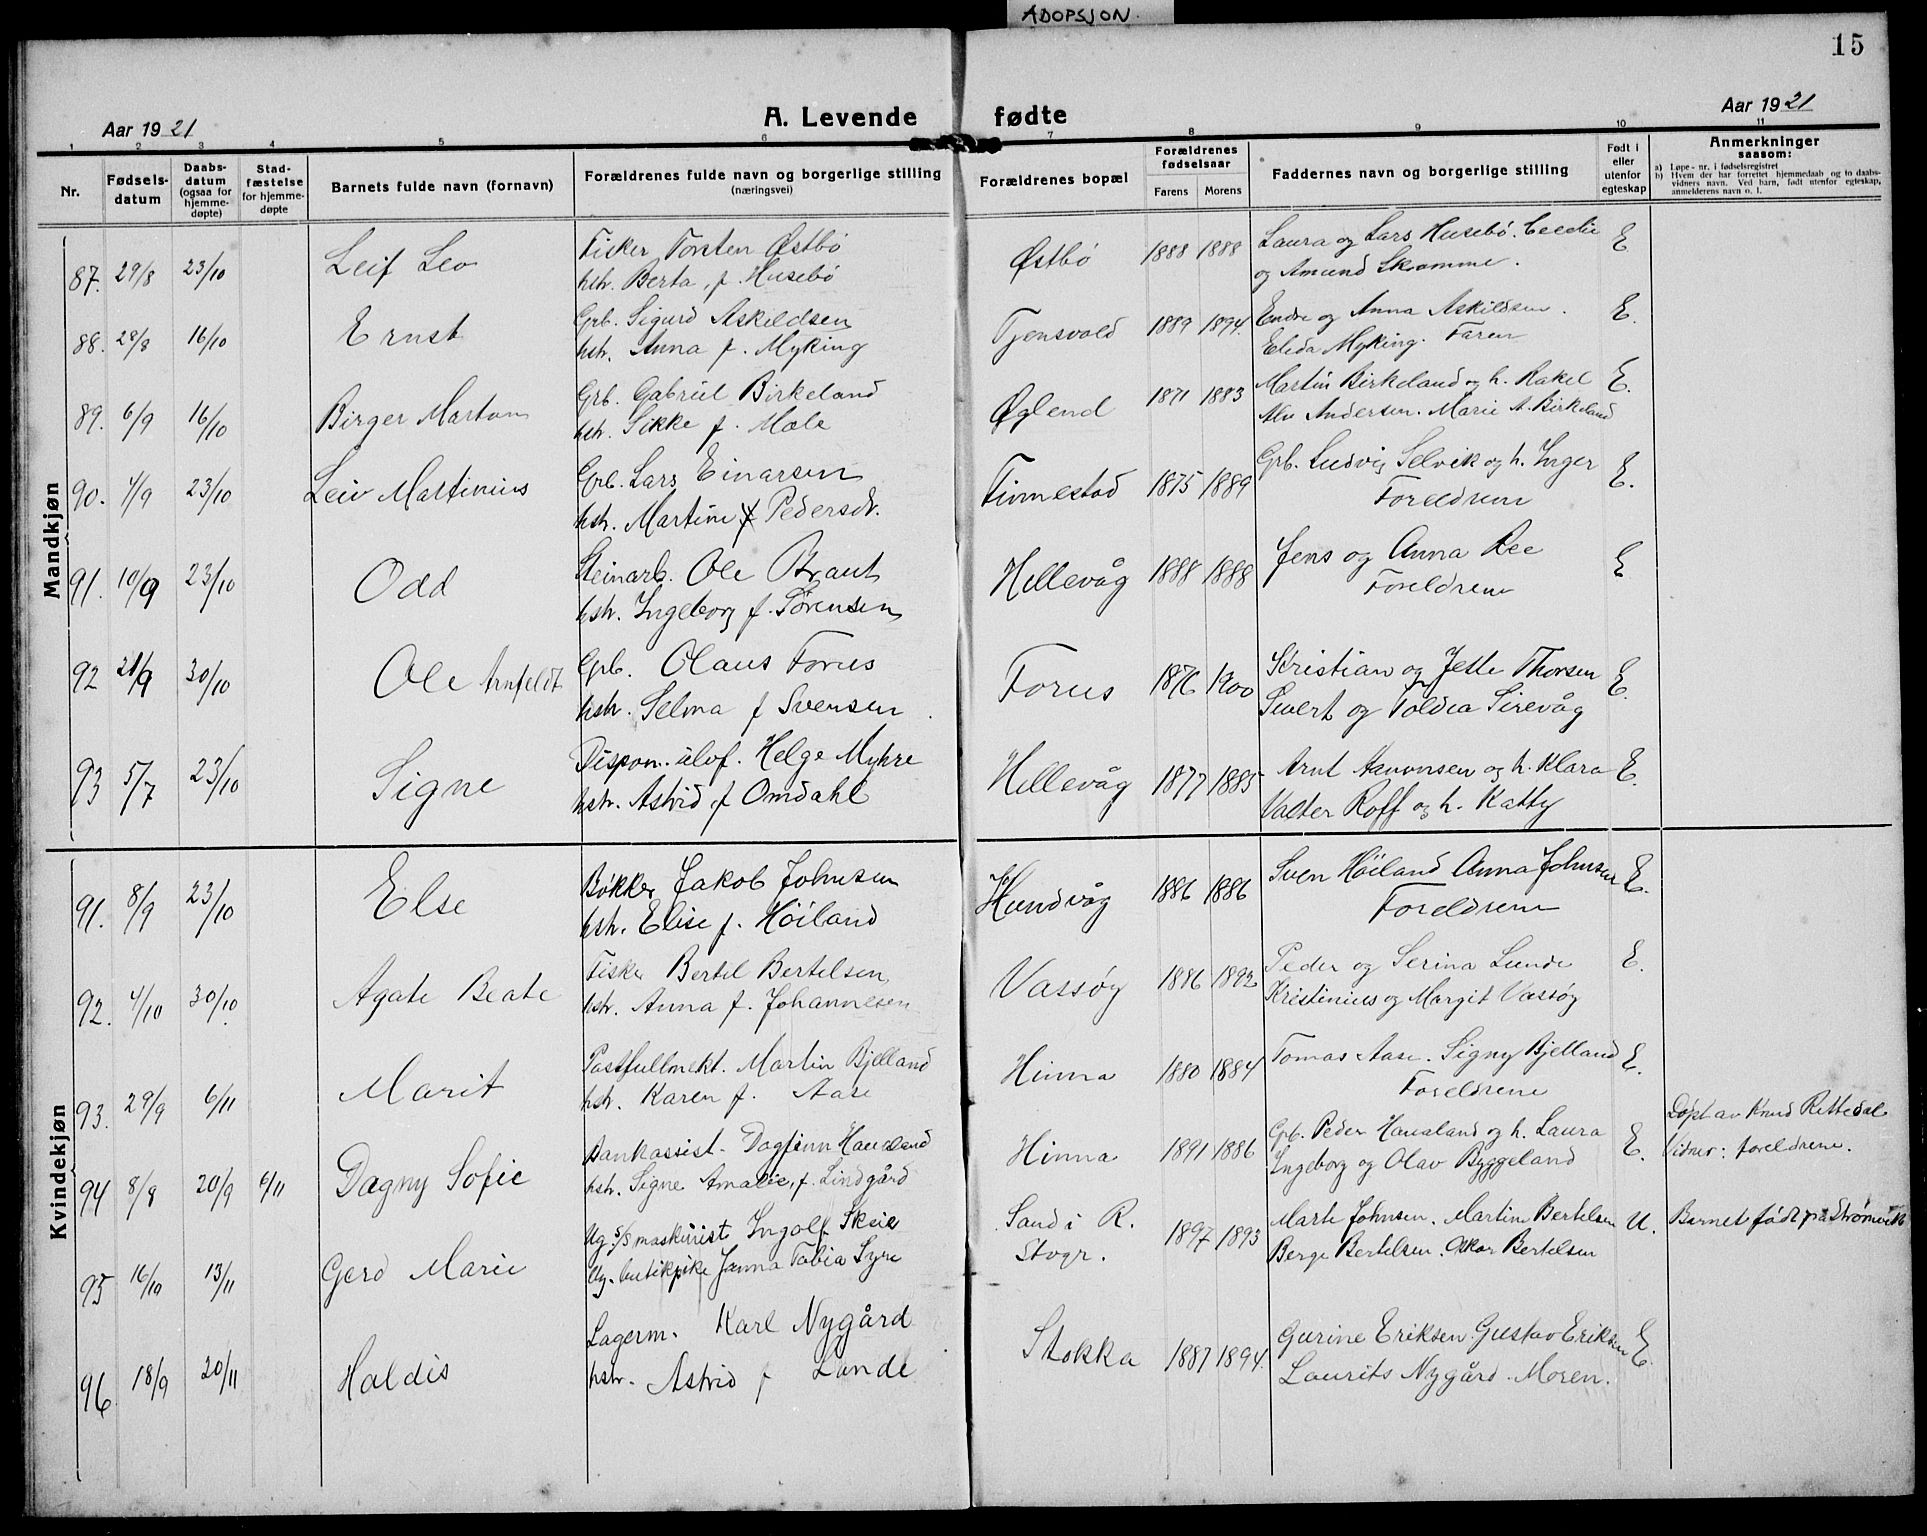 ADOPSJON.
15
Aar 1921
A. Levende fødte
Aar 1921
1 2 3 4 5 6 7 8 9 10 11
Nr.
Fødsels-datum
Daabs-datum (ogsaa for hjemme-døpte)
Stad-fæstelse for hjemme-døpte
Barnets fulde navn (fornavn)
Forældrenes fulde navn og borgerlige stilling (næringsvei)
Forældrenes bopæl
Forældrenes fødselsaar
Farens Morens
Faddernes navn og borgerlige stilling
Født i eller utenfor egteskap
Anmerkninger saasom:
a) Løpe-nr. i fødselsregistret
b) Hvem der har forrettet hjemmedaab og to daabs-vidners navn. Ved barn, født utenfor egteskap, anmelderens navn o. l.
Mandkjøn
87. 29/8 23/10 Leif Leo Fisker Torsten Østbö Østbö 1888 1888 Laura og Lars Husebö. Cecilie E
hstr. Berta, f. Husebö og Amund Skromme.
88. 28/8 16/10 Ernst Grb. Sigurd Askildsen Tjensvold 1889 1894. Endre og Anna Askildsen. E.
hstr. Anna f. Myking Elida Myking. Faren
89. 6/9 16/10 Birger Marton Grb. Gabriel Birkeland Øglend 1871 1883 Martin Birkeland og h. Rakel E.
hstr. Sikke f. Mæle Andersen. Marie A. Birkeland
90. 4/9 23/10 Leiv Martinius Grb. Lars Einarsen Finnestad 1875 1889 Grb. Ludvig Selvik og h. Inger E.
hstr. Martine Pedersdr. Foreldrene
91. 10/9 23/10 Odd Steinarb. Ole Braut Hillevåg 1888 1888 Jens og Anna Ree E
hstr. Ingeborg f. Sørensen Foreldrene
92 21/9 30/10 Ole Arnfeldt Grb. Olaus Forus Forus 1876 1900 Kristian og Jette Thorsen E.
hstr. Selma f Svensen. Sivert og Toldia Sirevåg
93 5/7 23/10 Signe Dispon. Helge Myhre Hillevåg 1877 1885 Arnt Aanonsen og h. Klara E.
hstr. Astrid f Omdahl Valter Roff og h. Katty
Kvindekjøn
91. 8/9 23/10 Else Bökker Jakob Johnsen Hundvåg 1886 1886 Sven Höiland Anna Johnsen E.
hstr. Elise f. Höiland Foreldrene
92. 4/10 30/10. Agate Beate Fisker Bertil Bertelsen Vassöy 1886 1892 Peder og Serina Lunde E.
hstr. Anna f. Johannesen Kristinius og Margit Vassöy
93. 29/9 6/11 Marit Postfullmekt. Martin Bjelland Hinna 1880 1884 Tomas Aase. Signy Bjelland E.
hstr. Karen f. Aase Foreldrene
94 8/8 20/9 6/11 Dagny Sofie Bankassist. Dagfinn Haualand Hinna 1891 1886 Grb. Peder Haualand og h. Laura E. Döpt av Knud Rettedal
hstr. Signe Amalie, f. Lindgård Ingeborg og Olav Byggeland Vidner: foreldrene.
95 16/10 13/11 Gerd Marie Ug. s/s maskinist Ingolf Skeie Sand i R. 1897 1893 Marte Johnsen. Martin Bertelsen U. Barnet födt på Strömvik
Ug. butikpike Janna Tobia Syre Stvgr. Berge Bertelsen. Oskar Bertelsen
96 18/9 20/11 Haldis Lagerm. Karl Nygård Stokka 1887 1894. Gurine Eriksen. Gustav Eriksen E.
hstr. Astrid f Lunde Laurits Nygård. Moren.